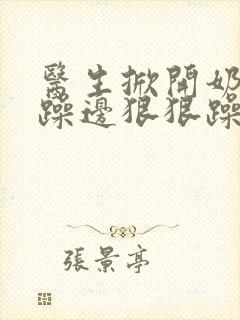 醫生掀開奶
躁邊狠狠躁
張景亭